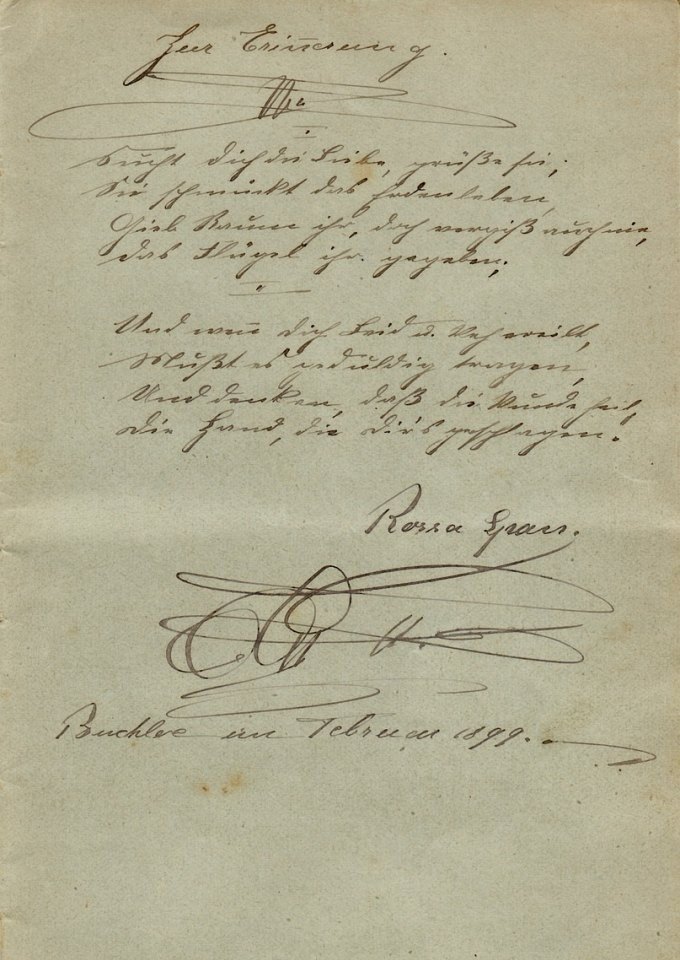 Zur Erin̄erung.
Sucht dich die Liebe, grüße sie;
Sie schmückt das Erdenleben,
Gieb Raum ihr, doch vergiß auch nie,
das Flügel ihr gegeben;
Und wen̄ dich Leid u. Weh ereilt,
Mußt es geduldig tragen,
Und denken, daß die Wunde heilt,
die Hand, die dir's geschlagen.
Rosa
Buchloe im Februar 1899.